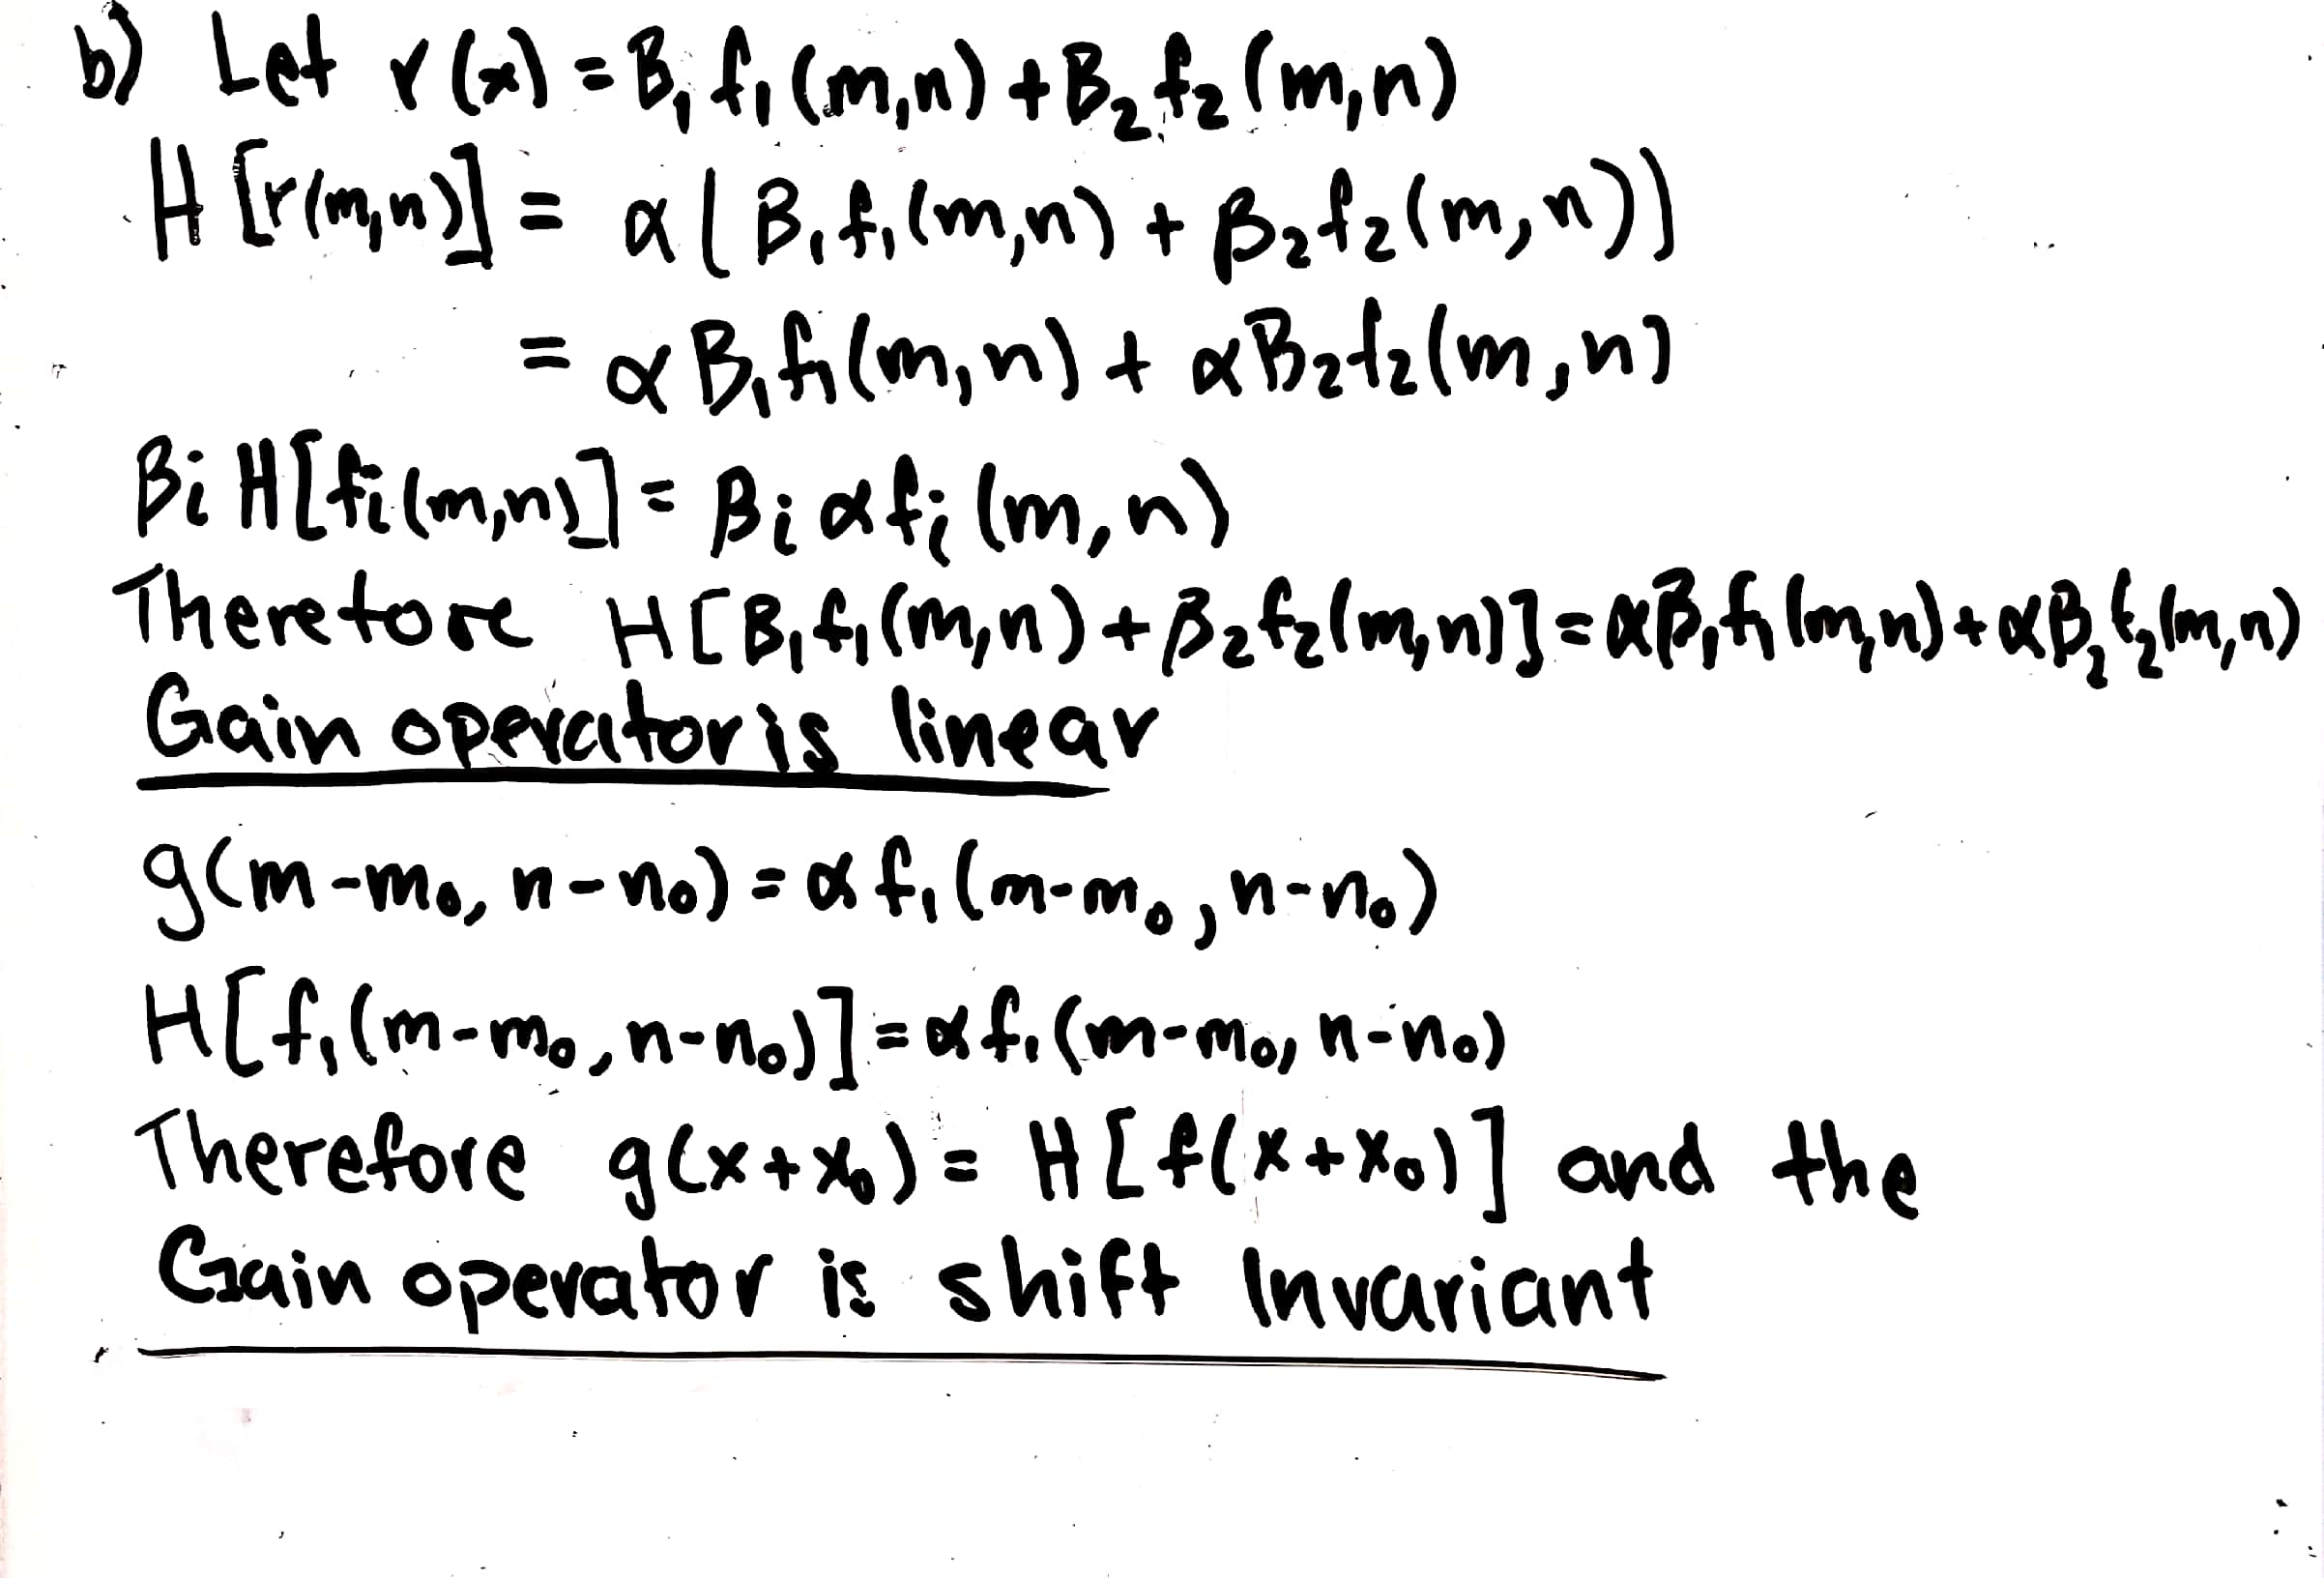 b) Let r(x) = B₁f₁(m,n) + B₂f₂(m,n)
H[r(m,n)] = α(β₁f₁(m,n) + β₂f₂(m,n))
= αB₁f₁(m,n) + αB₂f₂(m,n)
βi H[fi(m,n)] = βi α fi(m,n)
Therefore H[B₁f₁(m,n) + β₂f₂(m,n)] = αβ₁f₁(m,n) + αβ₂f₂(m,n)
Gain operator is linear
g(m-m₀, n-n₀) = αf₁(m-m₀, n-n₀)
H[f₁(m-m₀, n-n₀)] = αf₁(m-m₀, n-n₀)
Therefore g(x+x₀) = H[f(x+x₀)] and the
Gain operator is shift Invariant